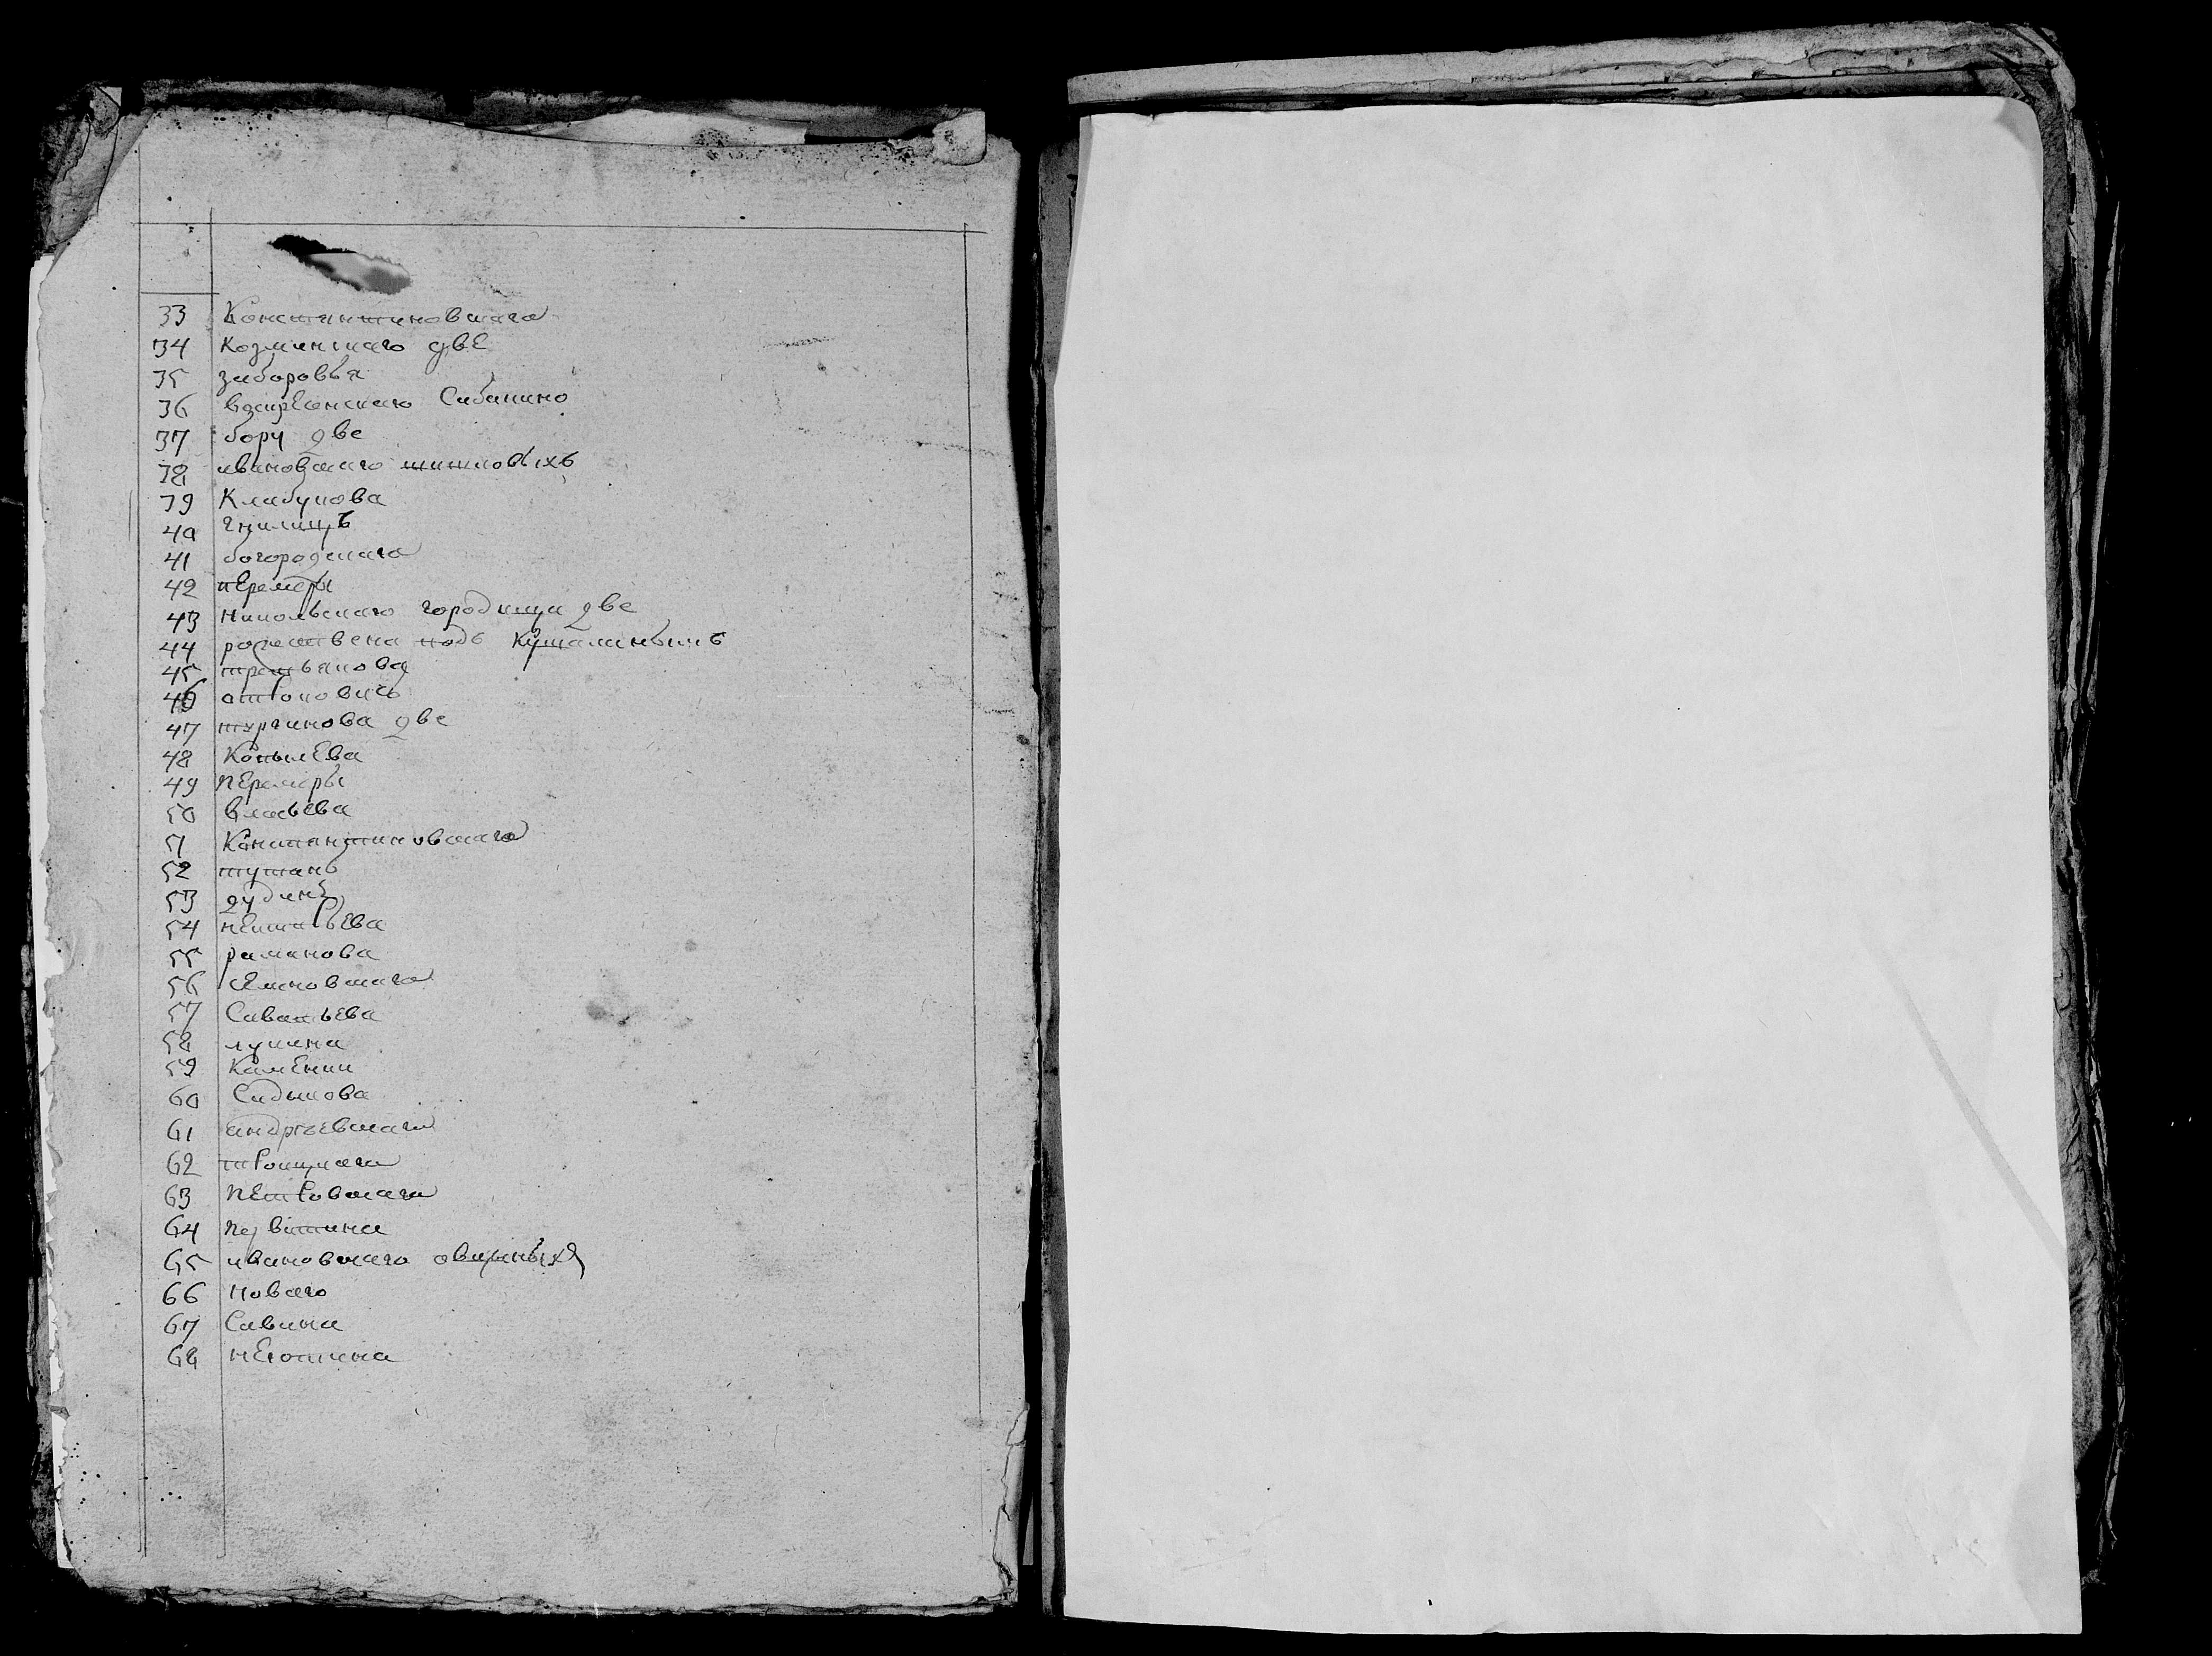 33 Константиновскаго
34 Козминскаго две
35 заборовья
36 взскресенскаго Сабанино
37 бору две
38 ивановскаго тит
39 Клабукова
40 гнилицъ
41 богородскаго
42 перемеры
43 никольскаго городищи две
44 рожествена подъ Кушалинымъ
45 третьякова
46
47 тургинова две
48 Копылева
49 Перемеры
50 власьева
51 Константиновскаго
52 тутань
53 дудень
54 нестерьева
55 раманова
56 семеновскаго
57 Саватьева
58 лукина
59 Каменки
60 Садыкова
61 андреевскаго
62 троицкаго
63 петровскаго
64 первитина
65 ивановскаго
66 Новаго
67 Савина
68 некотина